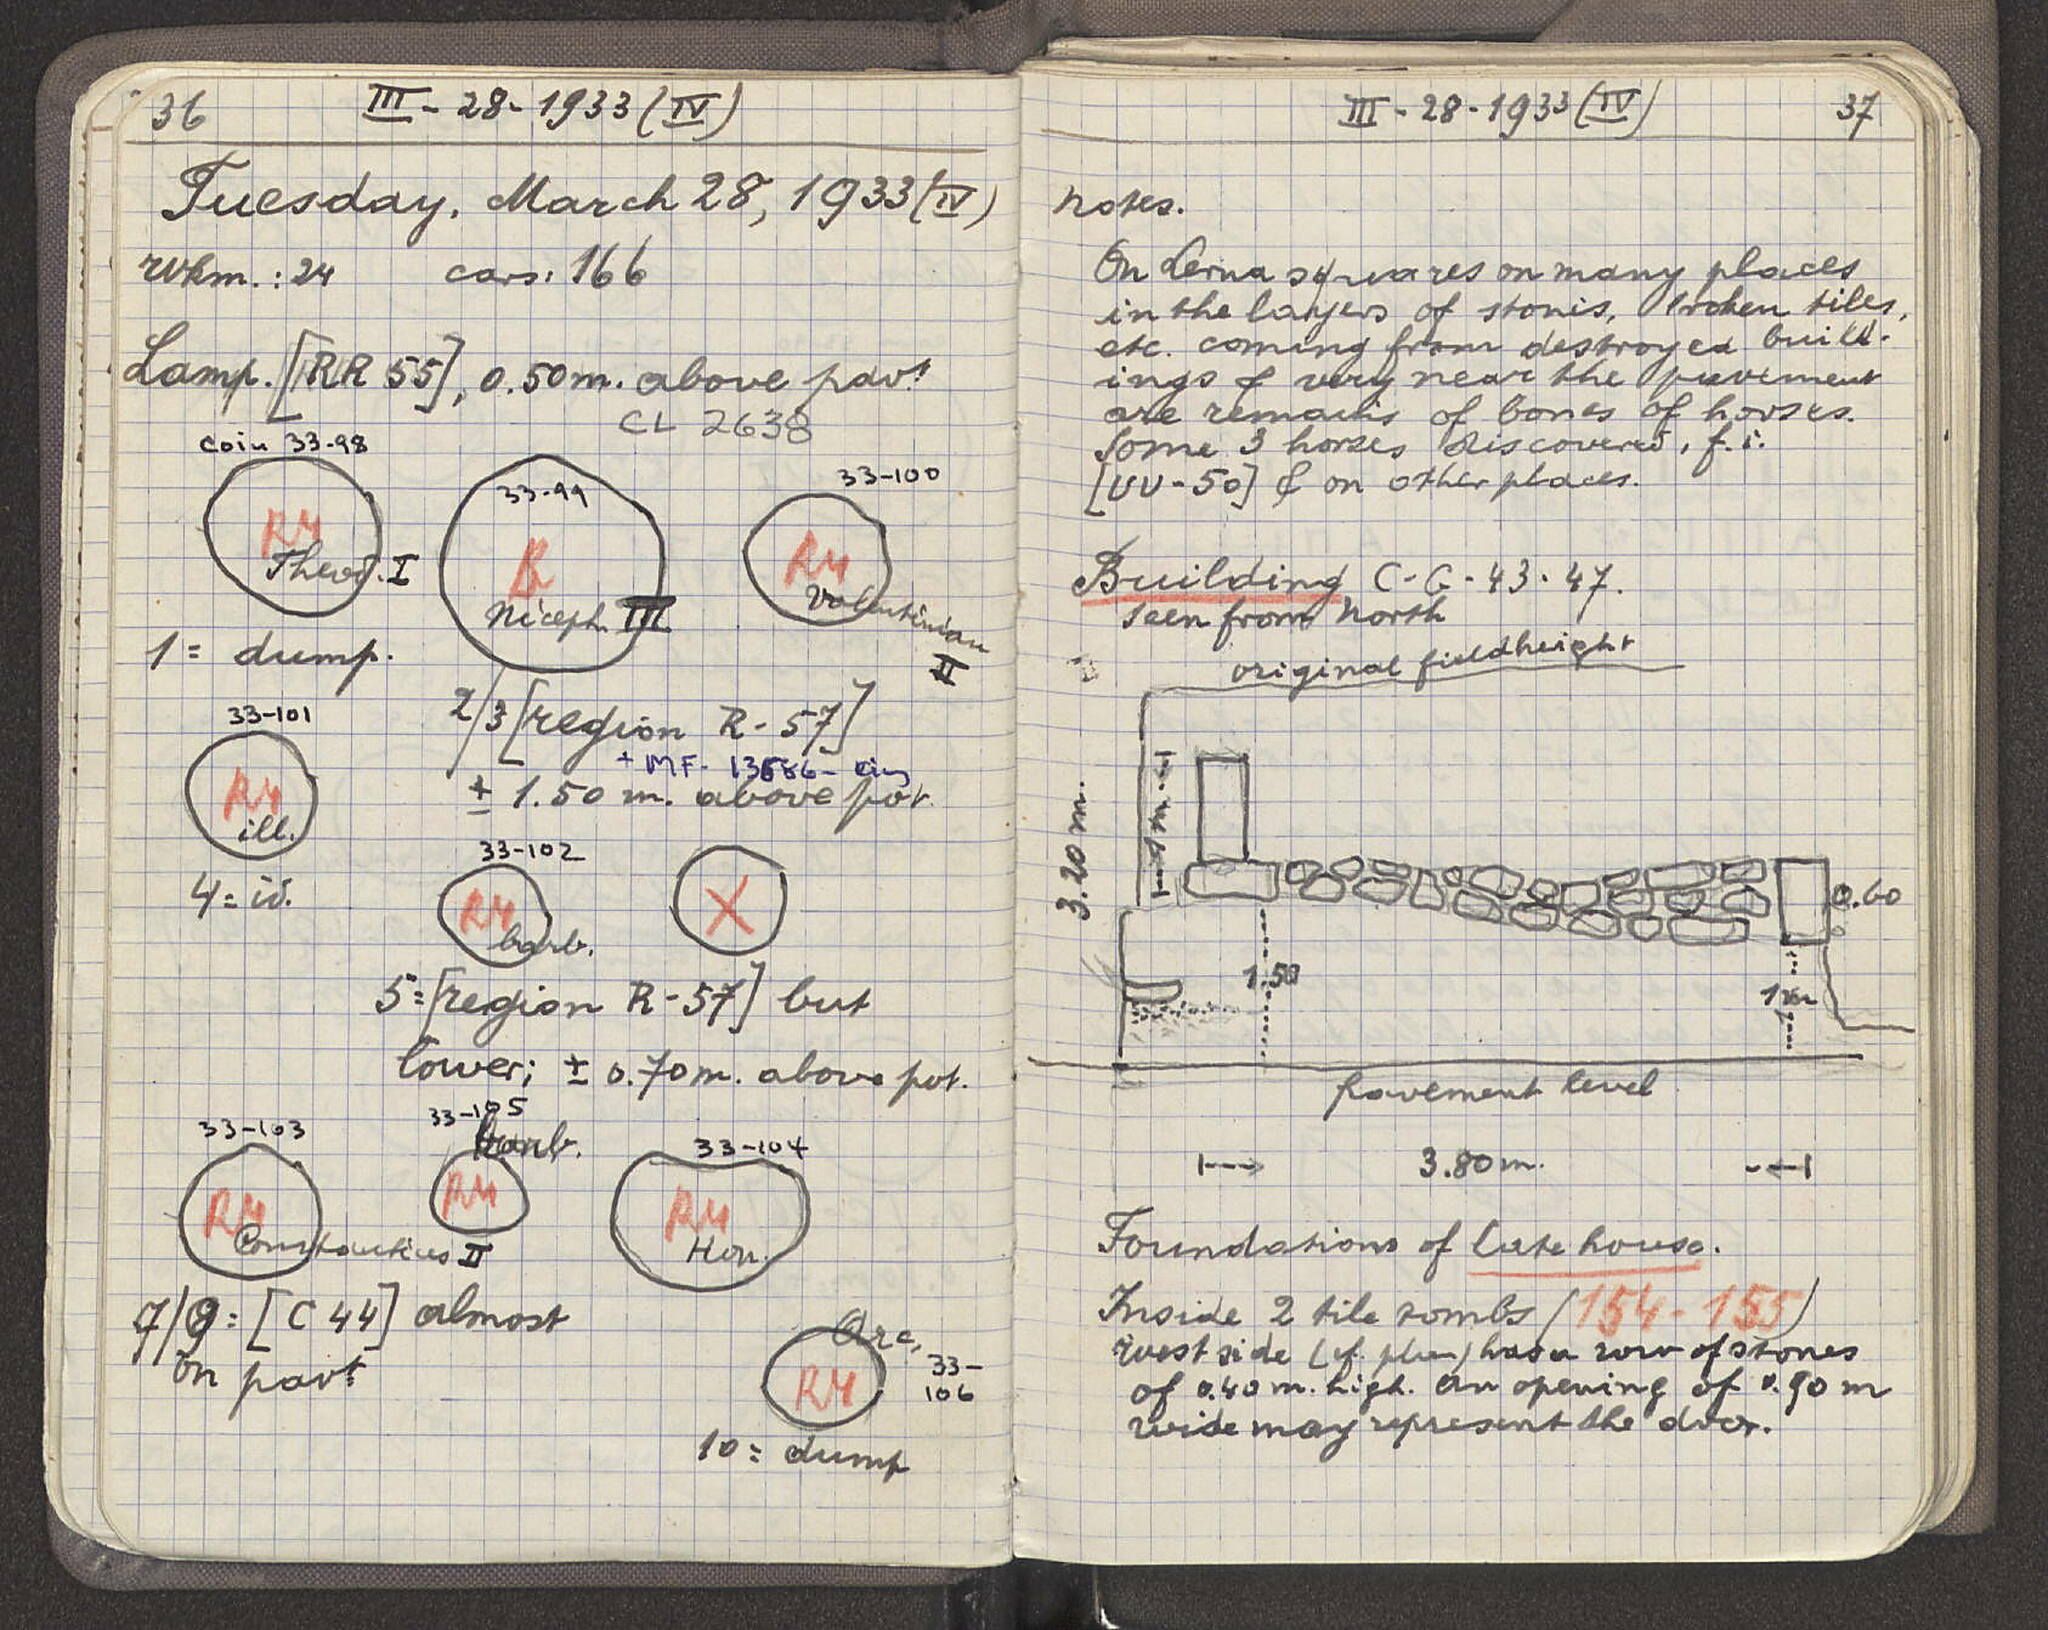 36
III - 28 - 1933 (IV)
Tuesday, March 28, 1933 (IV)
wkm. : 24 cars: 166
Lamp. [RR 55], 0.50 m. above pavt
CL 2638
coin 33-98
33-99
33-100
R4
Theod. I
B
Niceph. III
R4
Valentinian
II
1 = dump.
2/3 [region R - 57]
+ MF- 13686-
± 1.50 m. above pvt.
33-101
R4
ill.
4 = id.
33-102
R4
barb.
X
5 = [region R-57] but
lower; ± 0.70 m. above pvt.
33-103
33-105
barb.
33-104
R4
Constantius II
R4
R4
Hon.
7/9 = [C 44] almost
on pavt
Arc.
33-
106
R4
10 = dump
III - 28 - 1933 (IV)
37
Notes.
On Lerna squares on many places
in the layers of stonis, broken tiles,
etc. coming from destroyed build-
ings & very near the pavement
are remains of bones of horses.
Some 3 horses discovered, f.i.
[UU-50] & on other places.
Building C-G-43-47.
seen from North
original fieldheight
3.20 m.
1 m.
0.60
1.50
1 m
pavement level
3.80 m.
Foundations of Late house.
Inside 2 tile tombs (154-155)
west side (cf. plan) has a row of stones
of 0.40 m. high. An opening of 0.90 m
wide may represent the door.